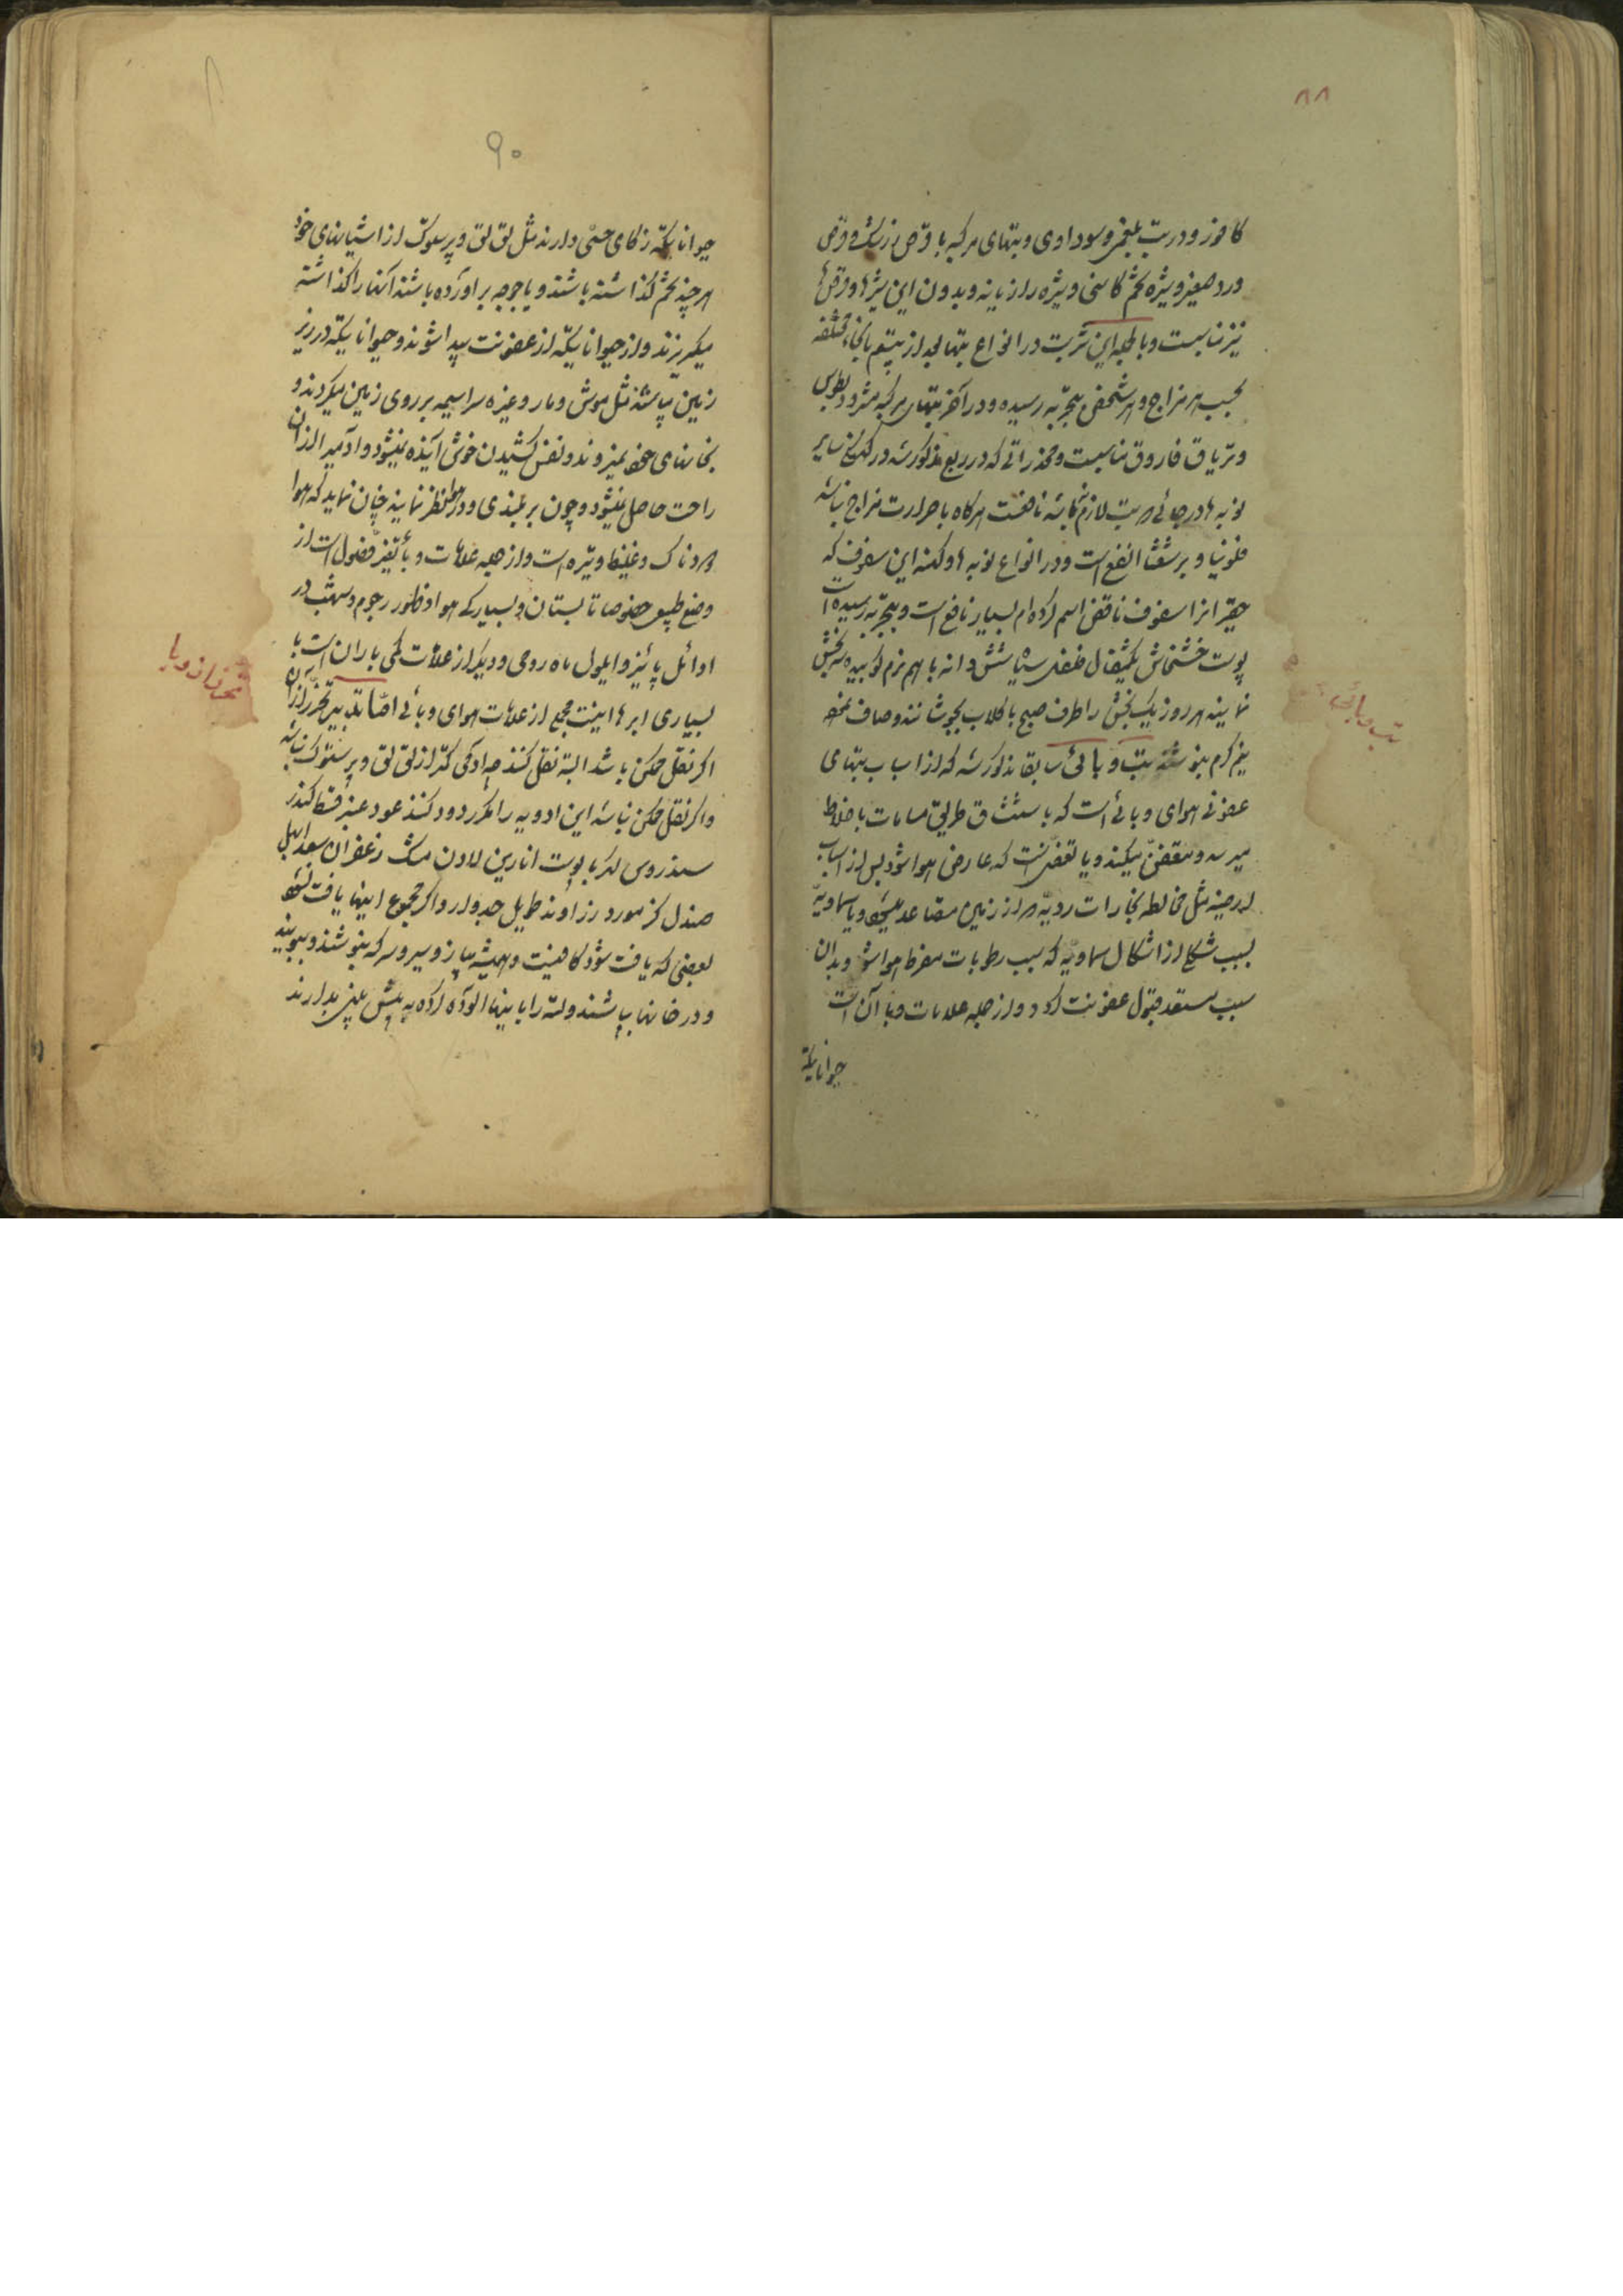 ۸۸
کافور و در تب بلغمی و سوداوی و تبهای مرکبه با قرص زرشک و قرص
ورد صغیر و شیره تخم کاسنی و شیره رازیانه و بدون این شیرها و قرصها
نیز مناسبست و بالجمله این شربت در انواع تبها بعد از هفتم بانحاء مختلفه
بحسب هر مزاج و هر شخصی بتجربه رسیده و در آخر تبهای مرکبه مثرودیطوس
و تریاق فاروق مناسبست و مخدراتی که در ربع مذکور شد در سایر
نوبه ها در جائی که تب لازم نباشد نافعست هرگاه با حرارت مزاج نباشد
فلونیا و برشعثا انفع است و در انواع نوبه های کهنه این سفوف که
حقیر انرا سفوف ناقض اسم کرده ام بسیار نافع است و بتجربه رسیده است
پوست خشخاش یکمثقال فلفل سیاه شش دانه با هم نرم کوبیده سه بخش
نمایند هر روز یک بخش را طرف صبح با گلاب بجوشانند و صاف نموده
نیم گرم بنوشند تب وبائی سابقا مذکور شد که از اسباب تبهای
عفونی هوای وبائی است که باستنشاق از طریق مسامات باخلاط
میرسد و متعفن میکند و یا تعفنست که عارض هوا شود پس از اسباب
ارضیه مثل مخالطه بخارات ردیه که از زمین متصاعد میشود و یا سماویه
بسبب شکلی از اشکال سماویه که سبب رطوبات مفرط هوا شود و بدان
سبب مستعد قبول عفونت گردد و از جمله علامات وبا آن است
حیواناتیکه
تب وبائی
۹۰
حیواناتیکه زکای حسی دارند مثل لق لق و پرستوک از اشیانهای خود
هر چند تخم گذاشته باشند و یا جوجه براورده باشند آنها را گذاشته
میگریزند و از حیواناتیکه از عفونت پیدا شوند و حیواناتیکه در زیر
زمین میباشند مثل موش و مار و غیره سراسیمه بر روی زمین میگردند و
بخانهای خود نمیروند و نفس کشیدن خوش آینده نمیشود و ادمی را از ان
راحت حاصل نمیشود و چون بر بلندی در هوا نظر نمایند چنان نماید که هوا
گردناک و غلیظ و تیره است و از جمله علامات وبا تغیر فصول است از
وضع طبیعی خصوصا تابستان و بسیاری گرمی هوا و ظهور رجوم و شهب در
اوائل پائیز و ایلول ماه رومی و دیگر از علامات کمی باران است با
بسیاری ابرها اینست مجمع از علامات هوای وبائی اما تدابیر تحرز از آن
اگر نقل ممکن باشد البته نقل کنند چه آدمی کمتر از لق لق و پرستوک نباشد
و اگر نقل ممکن نباشد این ادویه را مکرر دود کنند عود عنبر قسط کندر
سندروس پوست انارین لادن مشک زعفران سعد ابهل
صندل گز مورد زراوند طویل جدوار و اگر مجموع اینها یافت نشود
بعضی که یافت شود کافیست و همیشه پیاز و سیر و سرکه بنوشند و ببویند
و در خانها بپاشند و لته را باینها الوده کرده پیش بینی بدارند
تحرز از وبا